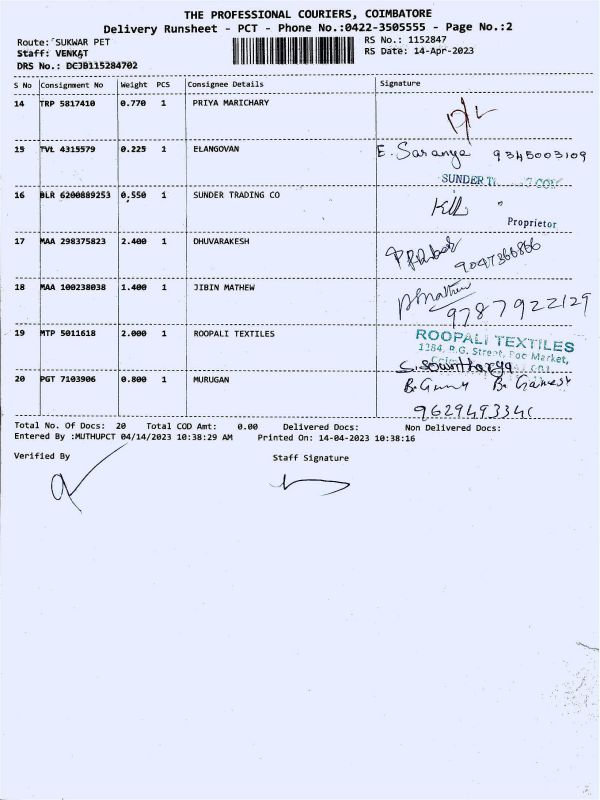 THE PROFESSIONAL COURIERS, COIMBATORE
Delivery Runsheet - PCT - Phone No.:0422-3505555 - Page No.:2
Route: SUKWAR PET RS No.: 1152847
Staff: VENKAT RS Date: 14-Apr-2023
DRS No.: DCJB115284702
S No Consignment No Weight PCS Consignee Details Signature
14 TRP 5817410 0.770 1 PRIYA MARICHARY
15 TVL 4315579 0.225 1 ELANGOVAN E. Saranya 9345003109
SUNDER
16 BLR 6200889253 0.550 1 SUNDER TRADING CO
Proprietor
17 MAA 298375823 2.400 1 DHUVARAKESH
9047366866
18 MAA 100238038 1.400 1 JIBIN MATHEW
9787922129
19 MTP 5011618 2.000 1 ROOPALI TEXTILES ROOPALI TEXTILES
1184, R.G. Street, Poc Market,
20 PGT 7103906 0.800 1 MURUGAN B. Ganesh
Total No. Of Docs: 20 Total COD Amt: 0.00 Delivered Docs: Non Delivered Docs:
Entered By :MUTHUPCT 04/14/2023 10:38:29 AM Printed On: 14-04-2023 10:38:16
Verified By Staff Signature